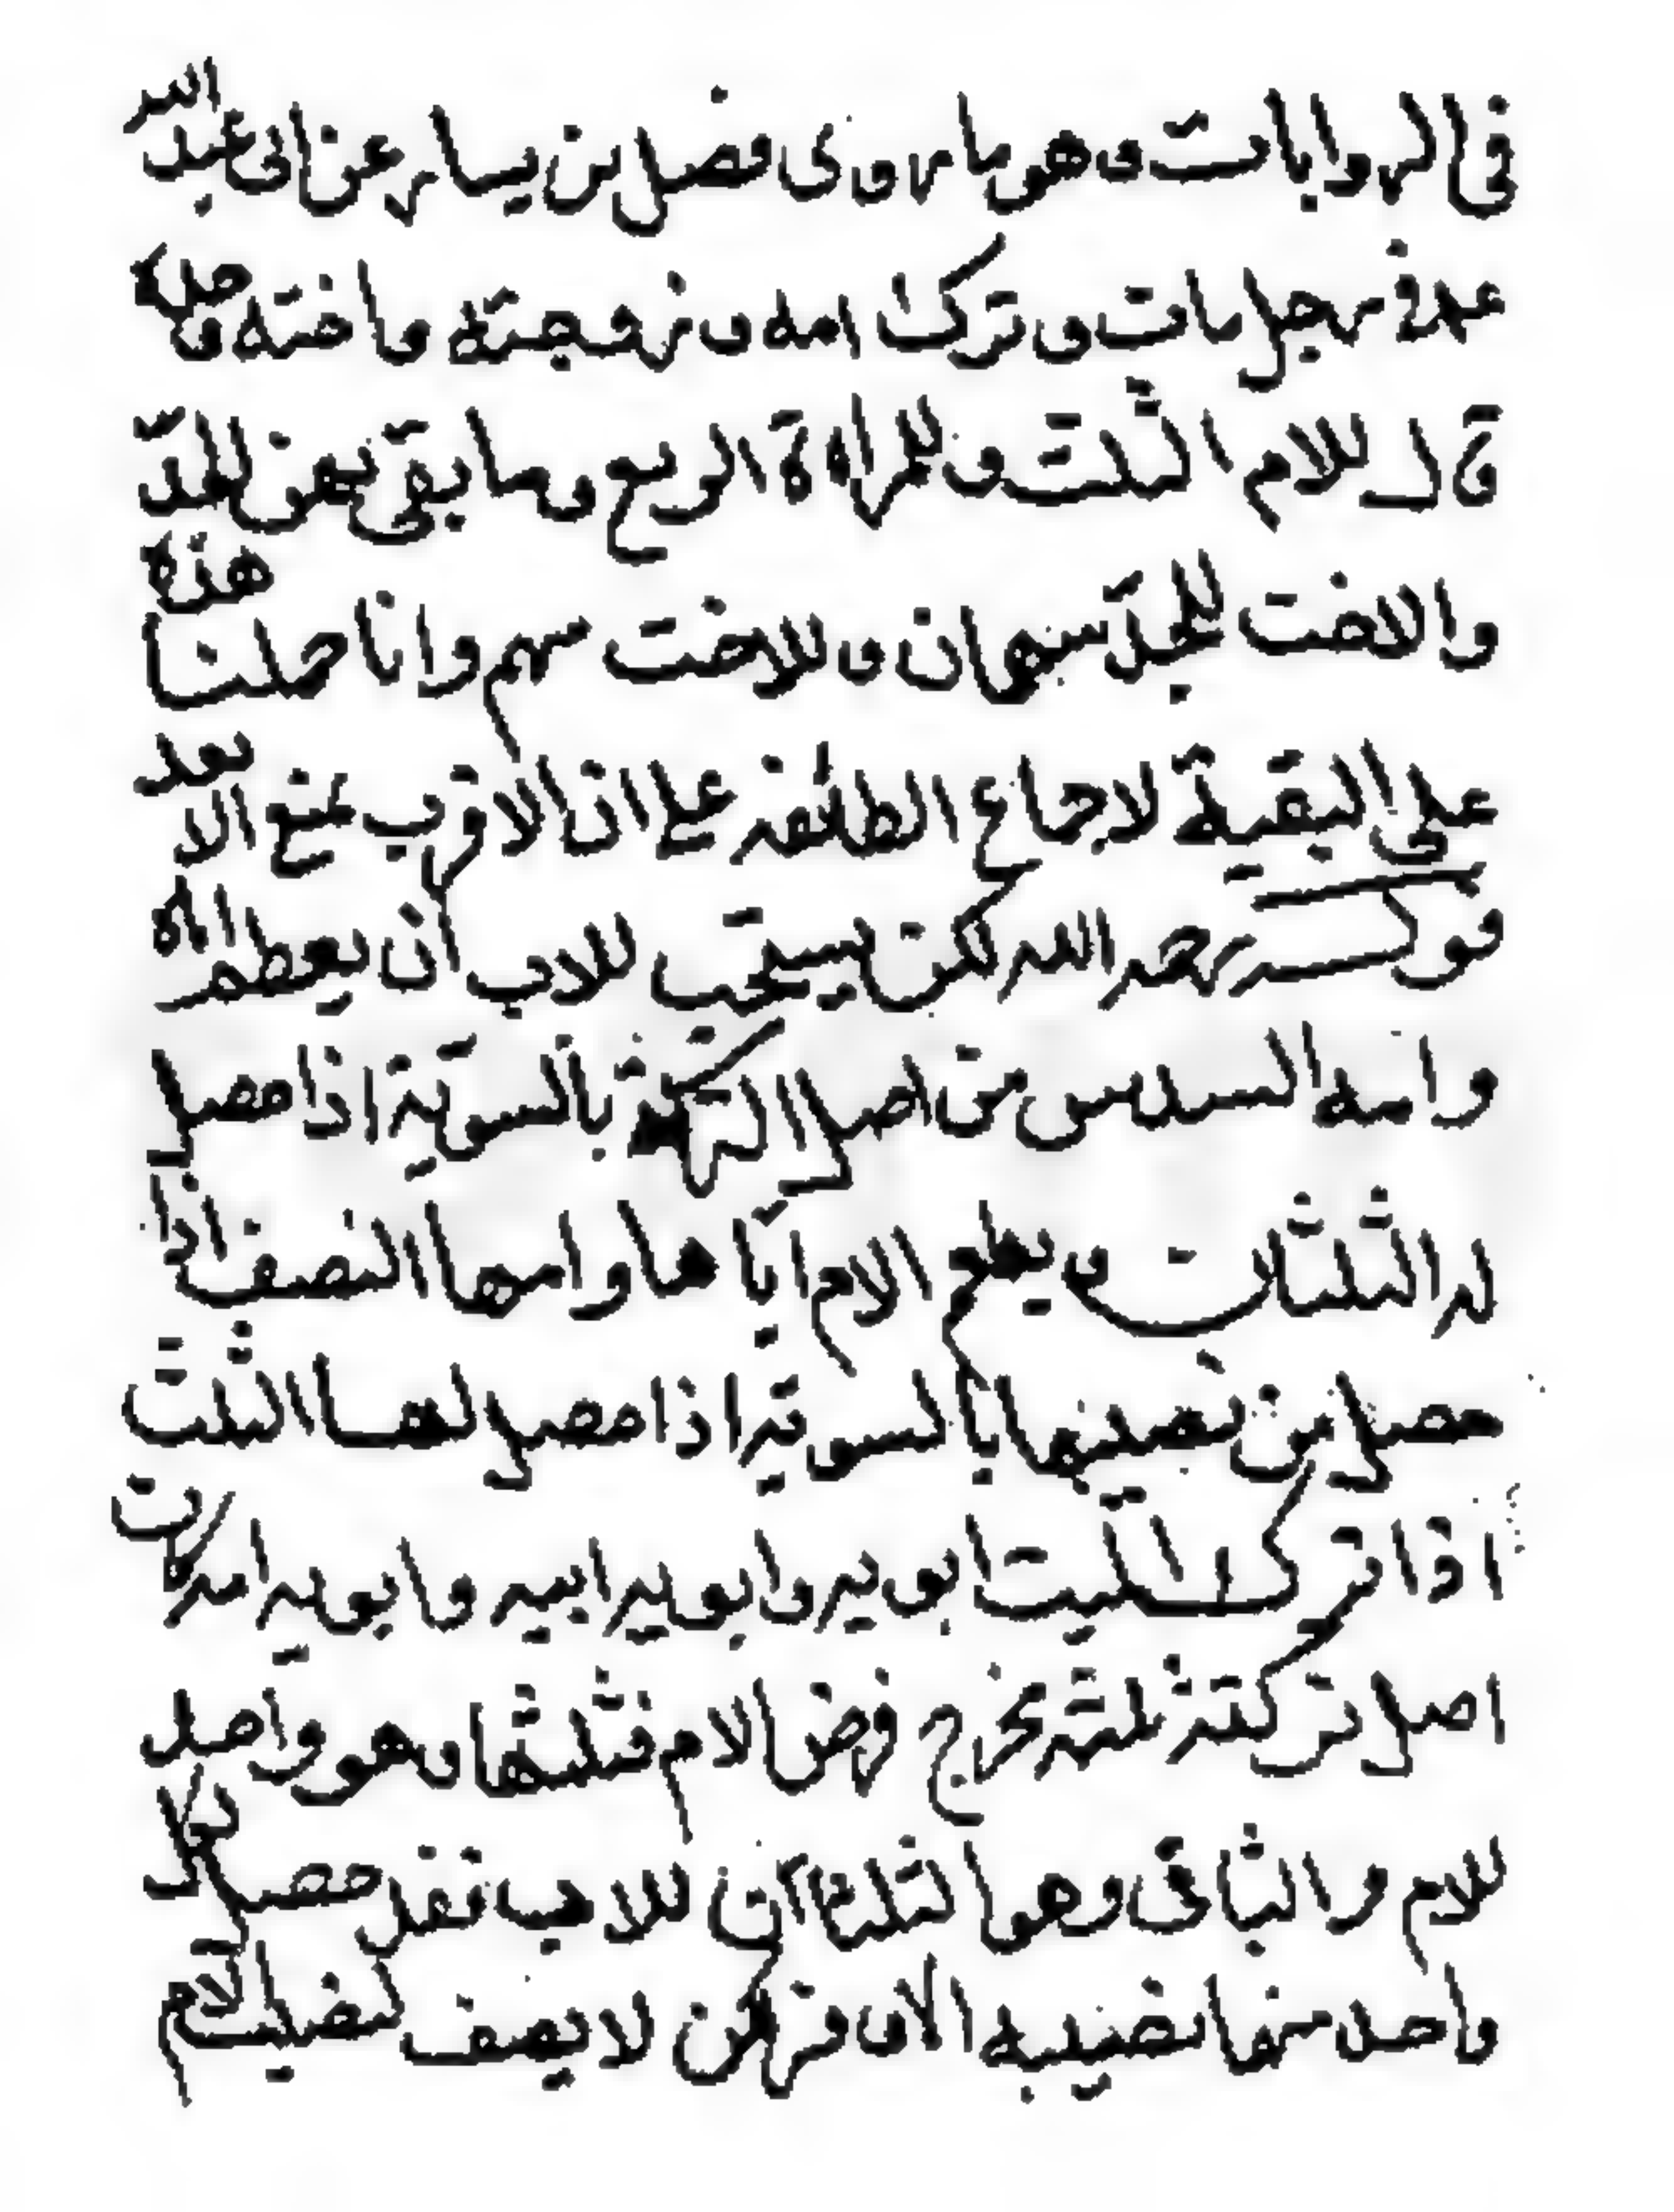 فى الروايات وهو ما روى فضل بن يسار عن ابى عبد الله
عم فى رجل مات وترك امه وزوجته واخته وجده
قال للام الثلث وللمرأة الربع وما بقى بين الجد
والاخت للجد سهمان وللاخت سهم وانا حملنا هذه
على التقية لاجماع الطائفة على ان الاقرب يمنع الابعد
قوله رحمه الله لكن يستحب للاب ان يعطم اباه
وامه السدس من اصل التركة بالسوية اذا حصل
له الثلثان ويطعم الام اباها وامها النصف اذا
حصل من نصيبها بالسوية اذا حصل لها الثلث
اذا ترك الميت ابويه وابويه ابيه وابويه امه كان
اصل تركته ثلثة مخرج فرض الام فثلثها وهو واحد
للام والباقى وهو الثلثان للاب فقد حصل لكل
واحد منهما نصيبه الاوفر لكن لا يضعف نصيب الام